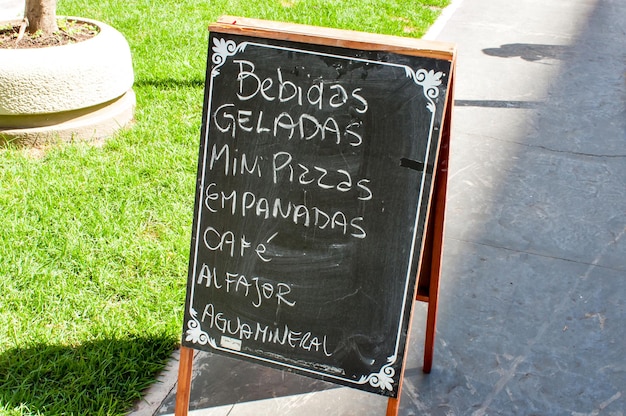 Bebidas
GELADAS
Mini Pizzas
EMPANADAS
CAFé
ALFAJOR
AGUA MINERAL